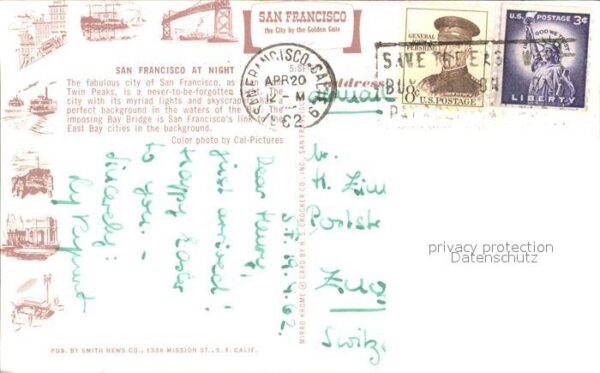 SAN FRANCISCO
the City by the Golden Gate
SAN FRANCISCO AT NIGHT
The fabulous city of San Francisco, as
Twin Peaks, is a never-to-be-forgotten
city with its myriad lights and skyscrap
perfect background in the waters of the
imposing Bay Bridge is San Francisco's link to
East Bay cities in the background.
Color photo by Cat-Pictures
SAN FRANCISCO, CALIF.
APR 20
12 - M
1962
GENERAL
JOHN J.
PERSHING
8¢ U.S. POSTAGE
U.S. POSTAGE 3¢
IN GOD WE TRUST
LIBERTY
Address
Airmail
S.F. 19.4.62.
Dear Henry,
just arrived!
Happy Easter
to you. -
Sincerely:
H.
Postst
Zug
Switz.
MIRRO-KROME ® CARD BY H. S. CROCKER CO., INC. SAN FRAN
privacy protection
Datenschutz
PUB. BY SMITH NEWS CO., 1336 MISSION ST., S. F. CALIF.